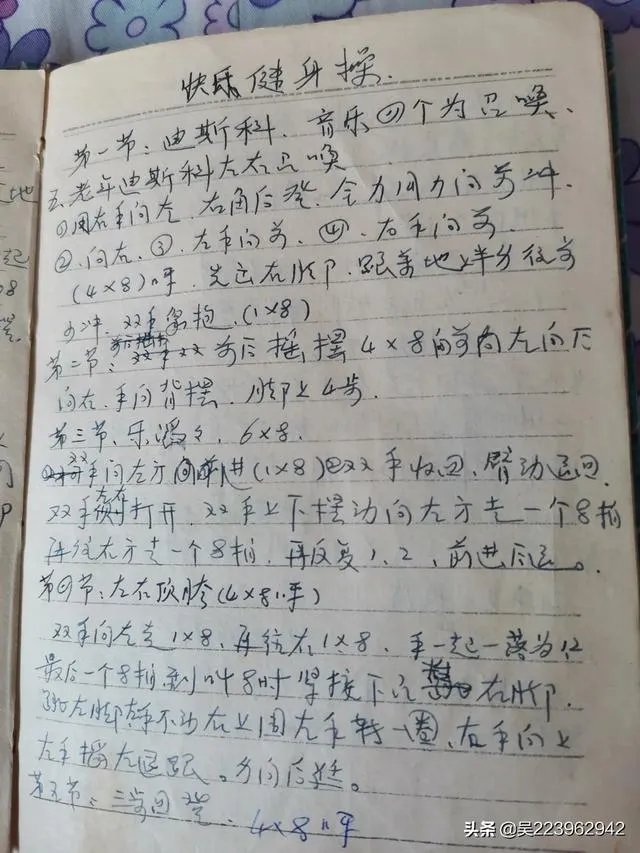 快乐健身操.
第一节:迪斯科.音乐四个为召唤.
五.老年迪斯科左右召唤
①用右手向左.右角后登.全力用力向前冲.
②.向右.③.左手向前.④.右手向前.
(4×8)呼.先迈右脚.跟着地上半身往前
前冲.双手 抱.(1×8)
第二节: 前后摇摆 4×8向前向左向后
向右.手向背摆.脚上4步.
第三节、乐滔々,6×8.
双手向左方向前进(1×8)②双手收回.臂动退回.
双手 打开.双手上下摆动向左方走一个8拍
再往右方走一个8拍.再反复1、2、前进后退。
第四节:左右顶胯(4×8呼)
双手向左走1×8.再往右1×8.手一起一落为12
最后一个8拍到叫8时紧接下 右脚.
左脚 手不动右上周左手转一圈.右手向上
左手摇左 跟。 向后 。
第五节: 4×8呼
起
08
头条 @吴223962942